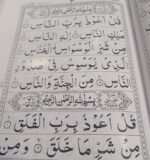 بِسْمِ اللهِ الرَّحْمٰنِ الرَّحِيْمِ
قُلْ اَعُوْذُ بِرَبِّ النَّاسِ
مَلِكِ النَّاسِ اِلٰهِ النَّاسِ
مِنْ شَرِّ الْوَسْوَاسِ الْخَنَّاسِ
الَّذِيْ يُوَسْوِسُ فِيْ صُدُوْرِ
النَّاسِ مِنَ الْجِنَّةِ وَالنَّاسِ
بِسْمِ اللهِ الرَّحْمٰنِ الرَّحِيْمِ
قُلْ اَعُوْذُ بِرَبِّ الْفَلَقِ
مِنْ شَرِّ مَا خَلَقَ وَمِنْ